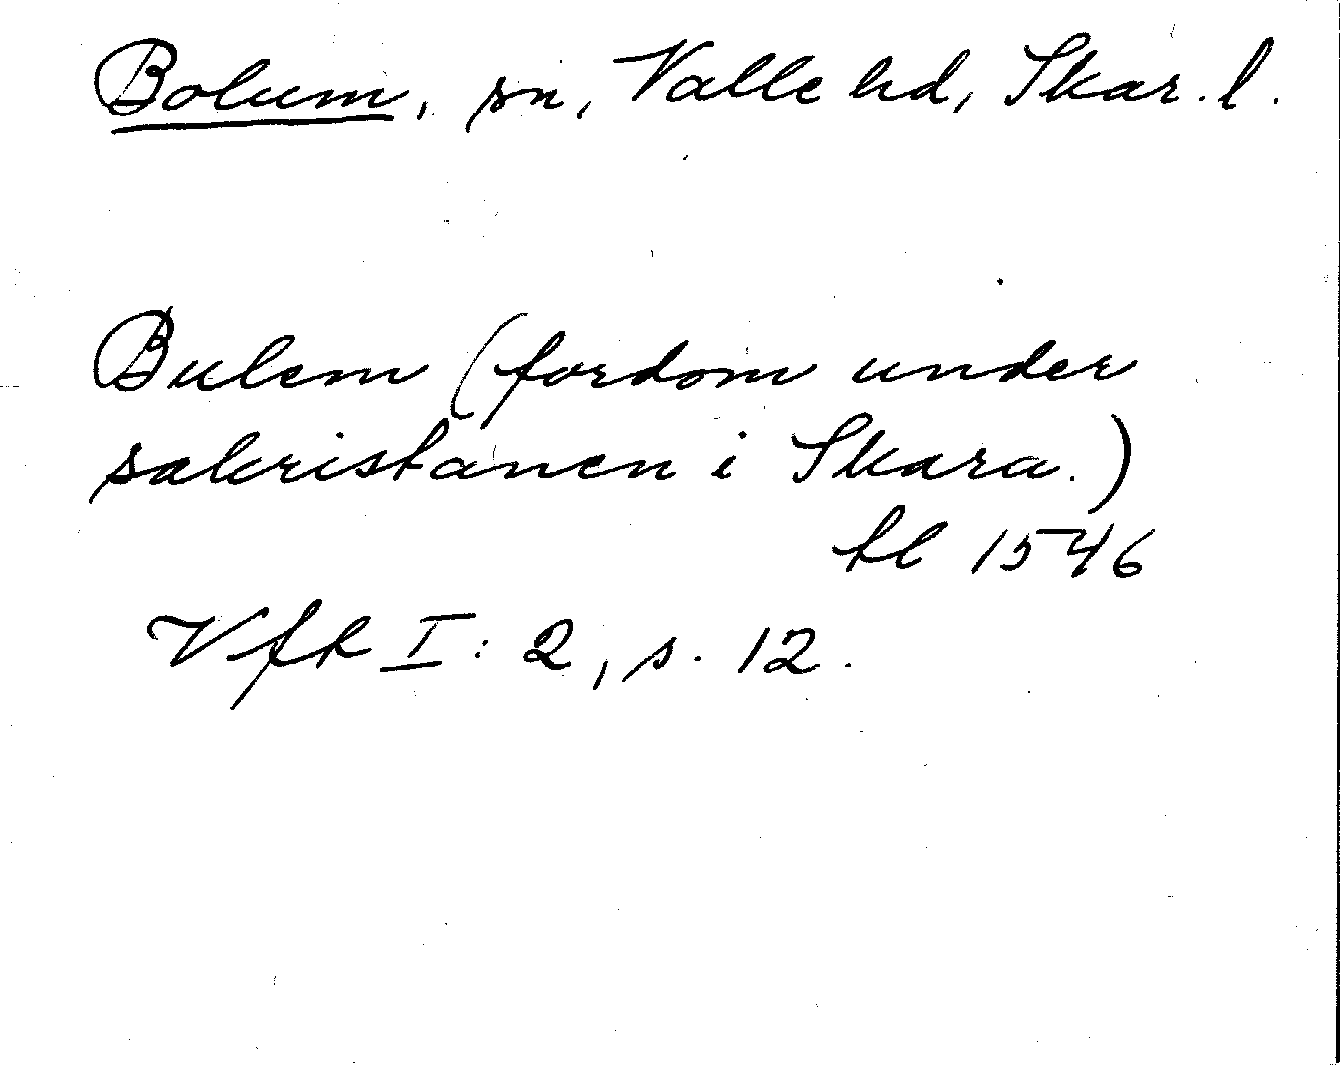 Bolum, sn, Valle hd, Skar. l.
Bulem (fordom under
sakristanen i Skara.)
kl 1546
Vfk I: 2, s. 12.